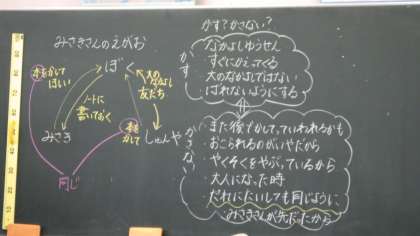 みさきさんのえがお
ぼく
本をかして
ほしい
ノートに
書いておく
大の
なかよし
友だち
本を
かして
みさき
しゅんや
同じ
かす?かさない?
かす
なかよしゆうせん
すぐにかえってくる
大のなかよしではない
ばれないようにする
かさない
・また後でかしていわれるかも
・おこられるのがいやだから
・やくそくをやぶっているから
・大人になった時
・だれにたいしても同じように
みさきさんが先だったから